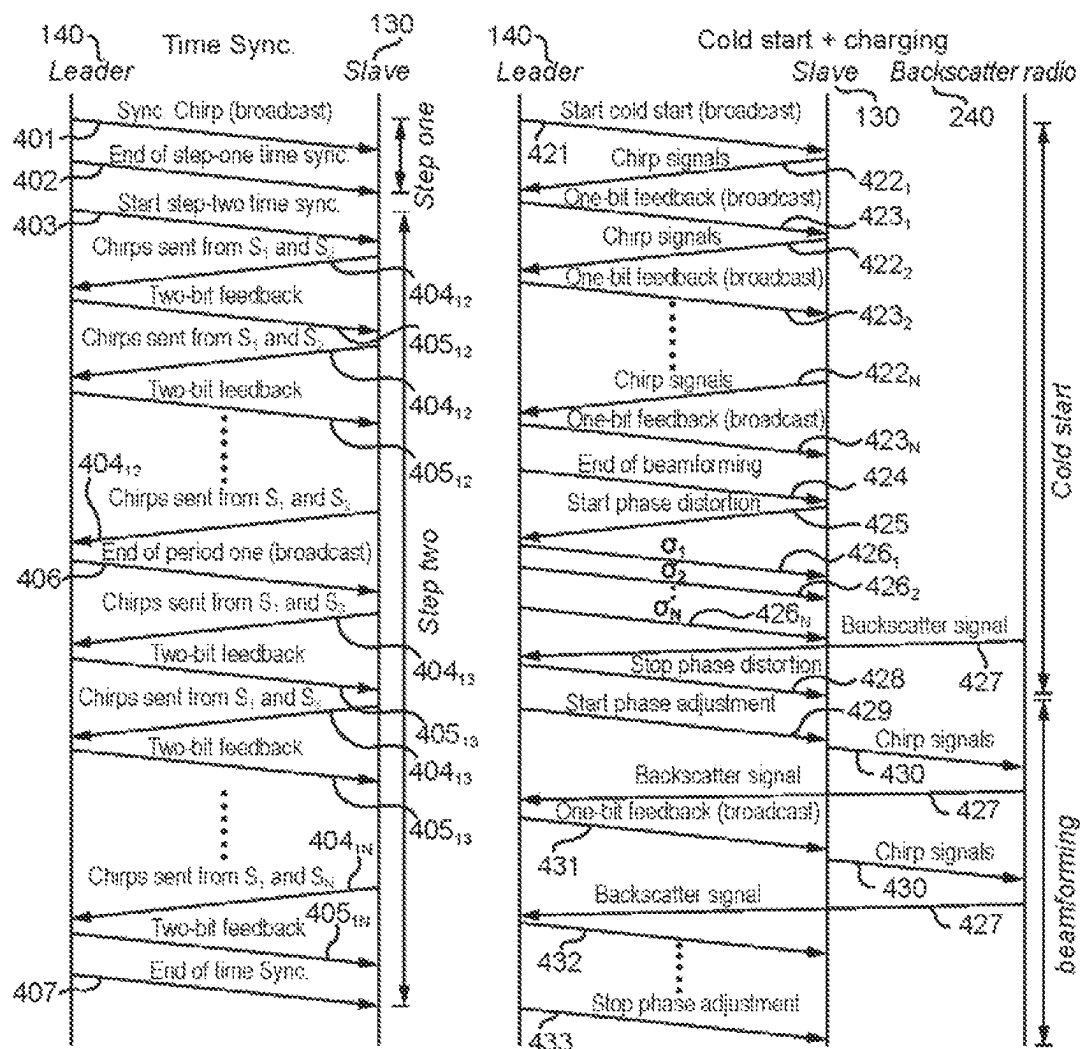 140 Time Sync. 130
Leader Slave
Sync. Chirp (broadcast)
401
End of step-one time sync.
402
Step one
Start step-two time sync.
403
Chirps sent from S1 and S2
404₁₂
Two-bit feedback
405₁₂
Chirps sent from S1 and S2
404₁₂
Two-bit feedback
405₁₂
404₁₂
Chirps sent from S1 and S2
End of period one (broadcast)
406
Step two
Chirps sent from S1 and S3
404₁₃
Two-bit feedback
405₁₃
Chirps sent from S1 and S3
404₁₃
Two-bit feedback
405₁₃
404₁N
Chirps sent from S1 and SN
405₁N
Two-bit feedback
End of time Sync.
407
140 Cold start + charging
Leader Slave Backscatter radio
130 240
Start cold start (broadcast)
421
Chirp signals
422₁
One-bit feedback (broadcast)
423₁
Chirp signals
422₂
One-bit feedback (broadcast)
423₂
Chirp signals
422N
One-bit feedback (broadcast)
423N
End of beamforming
424
Start phase distortion
425
σ₁
426₁
σ₂
426₂
σN
426N
Backscatter signal
427
Stop phase distortion
428
Cold start
Start phase adjustment
429
Chirp signals
430
Backscatter signal
427
One-bit feedback (broadcast)
431
Chirp signals
430
Backscatter signal
427
432
Stop phase adjustment
433
beamforming